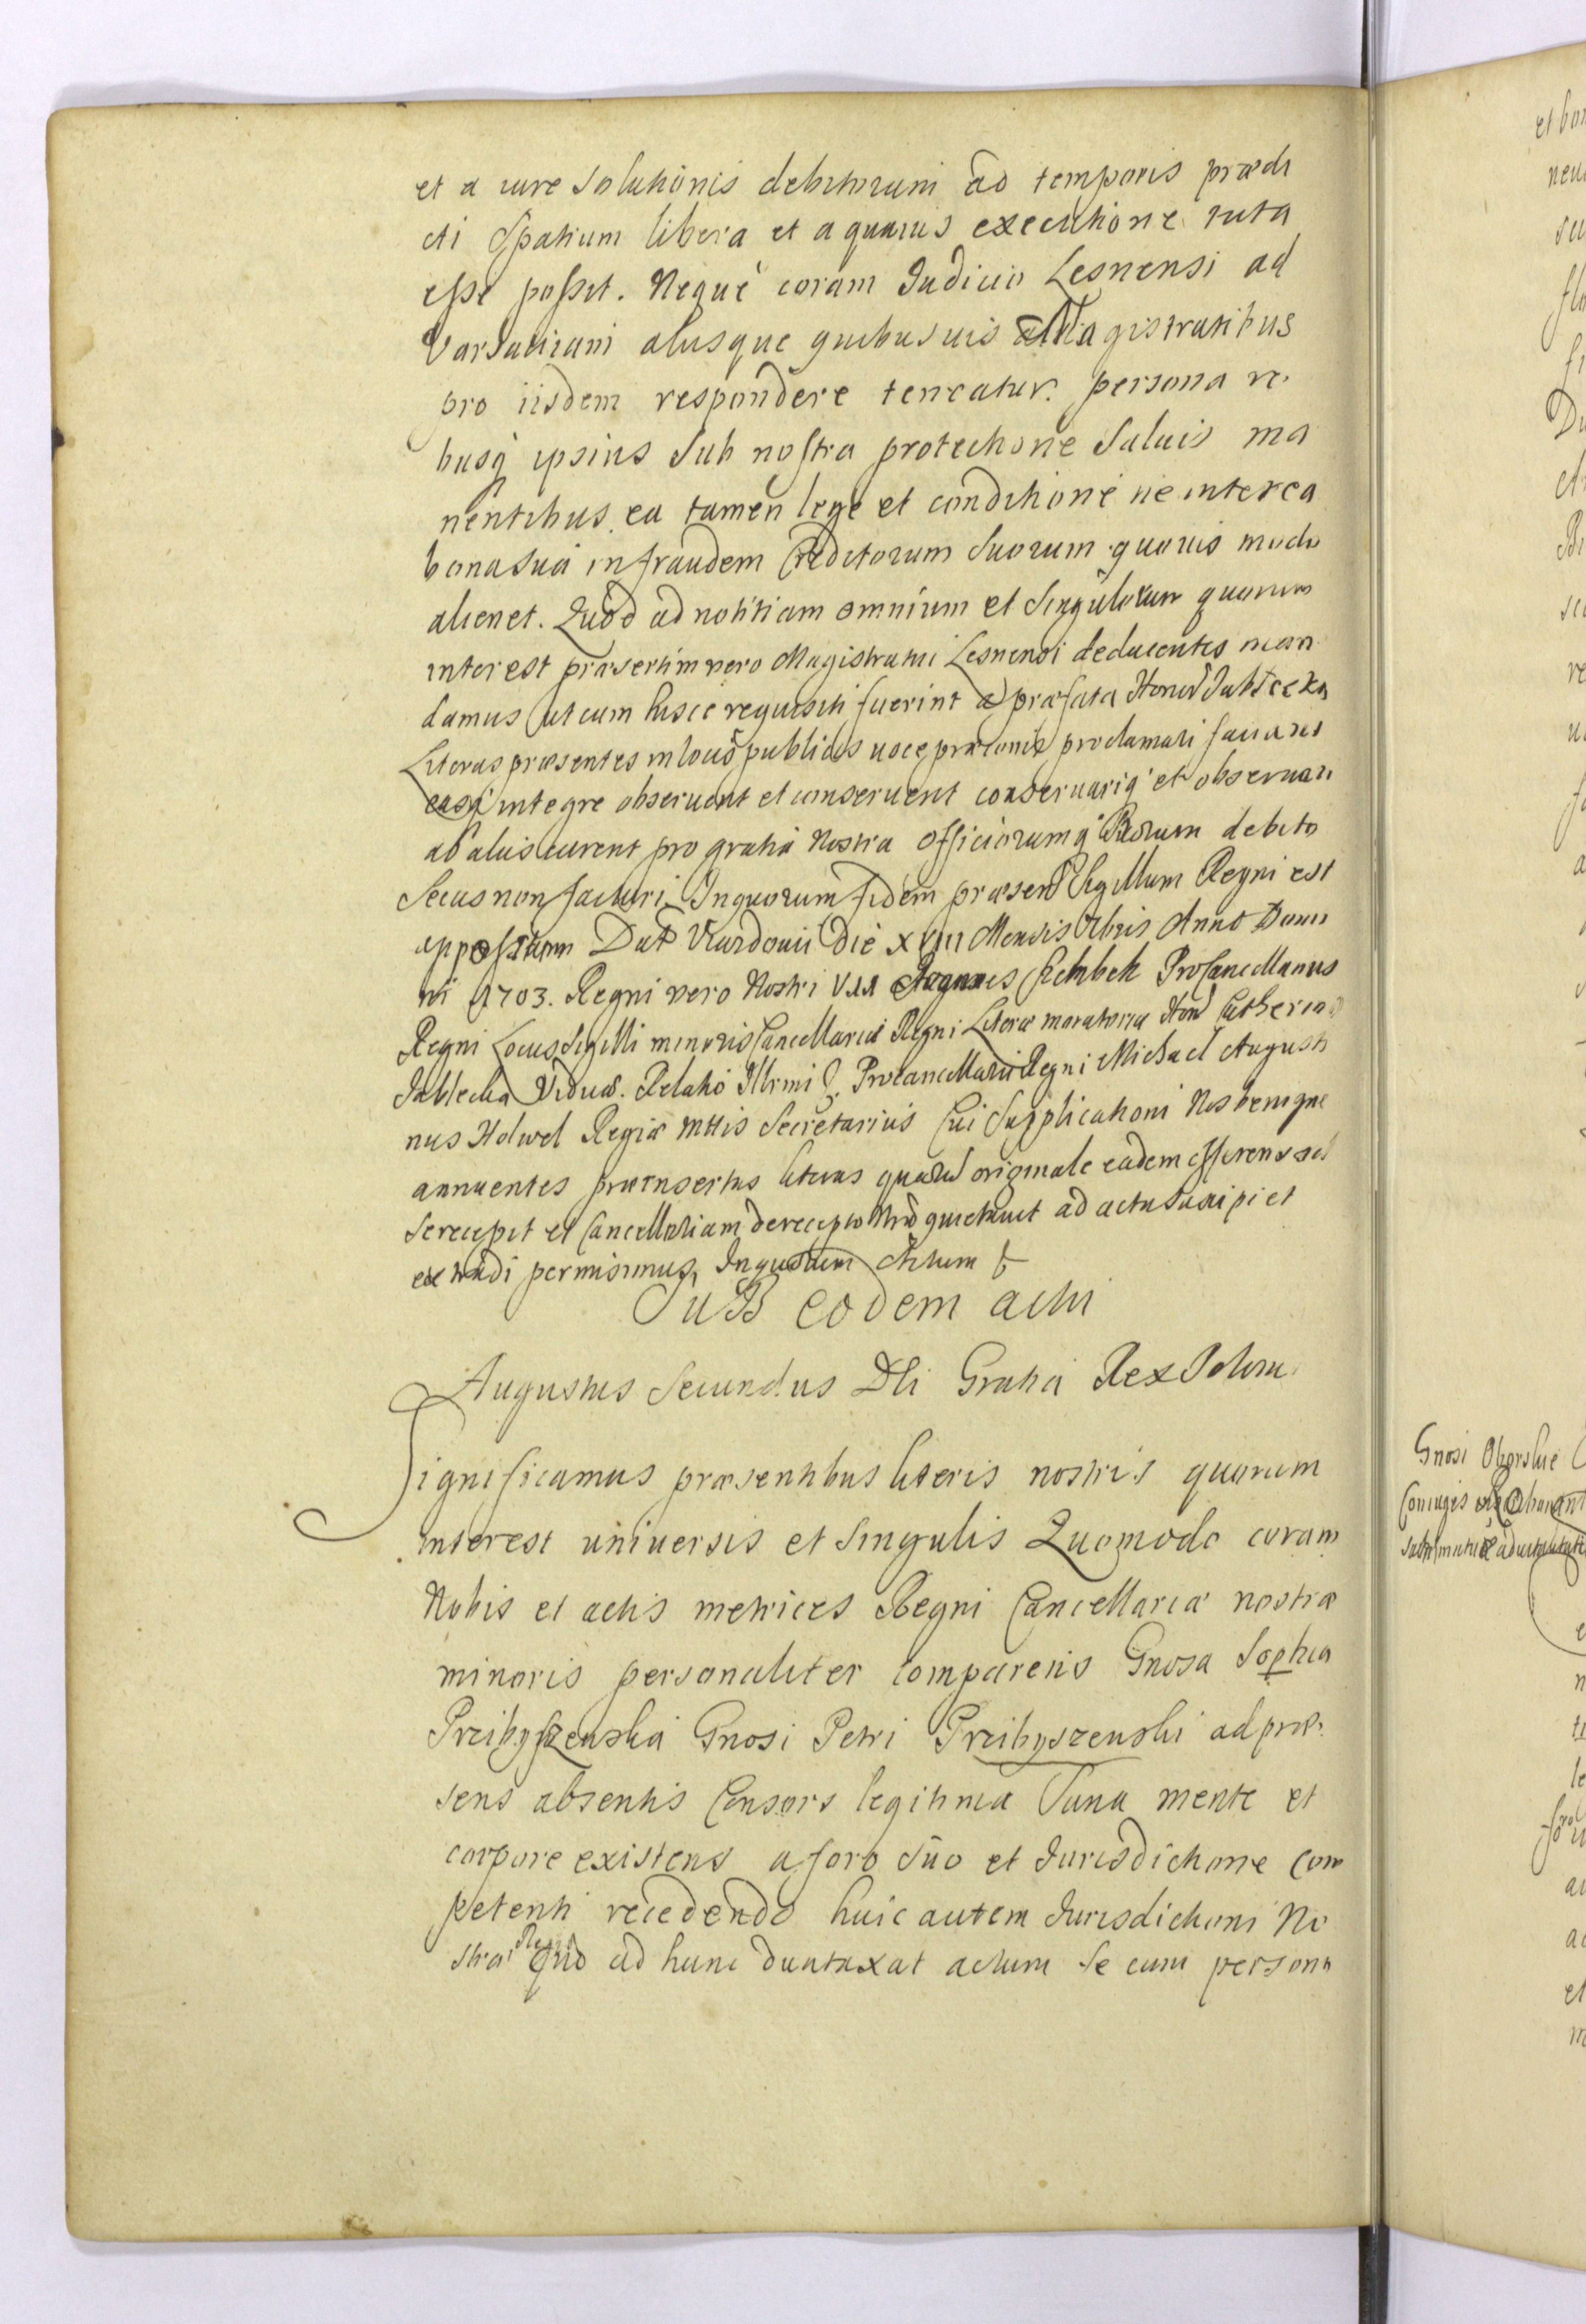 et a iure solutionis debitorum ad temporis prædi
cti spatium libera et a quauis executione tuta
esse possit. Neque coram Iudicio Lesnensi ad
Varsauiam alijsque quibusuis Magistratibus
pro iisdem respondere teneatur. persona re
busq ipsius sub nostra protectione saluis ma
nentibus ea tamen lege et conditione ne interea
bona sua in fraudem Creditorum suorum quouis modo
alienet. Quod ad notitiam omnium et singulorum quorum
interest præsertim vero Magistratui Lesnensi deducentes man
damus ut cum hisce requisiti fuerint a præfata Honed Jabłecka
Literas præsentes in locis publicis uoce præconis proclamari faciant
easq integre obseruent et conseruent conseruariq et obseruari
ab alijs curent pro gratia Nostra officiorumq suorum debito
secus non facturi. In quorum fidem præsens Sigillum Regni est
appressum Dat die XVIII Mensis Xbris Anno Domi
ni 1703. Regni vero Nostri VII Joannes Szembek ProCancellarius
Regni Locus Sigilli minoris Cancellariæ Regni Literæ moratoriæ Hond Catherinæ
Jablecka Viduæ. Relatio Illrmi D. Procancellarii Regni Michael Augusti
nus Holwel Regiæ Mttis Secretarius Cui supplicationi Nos benigne
annuentes præinsertas literas quarum originale eadem offerens ad
se recepit et Cancellariam de recepto Nrō quietauit ad acta suscipi et
extradi permisimus, In quorum
Sub eodem actu
Augustus Secundus DEi Gratia Rex Polon
Significamus præsentibus literis nostris quorum
interest uniuersis et singulis Quomodo coram
Nobis et actis metrices Regni Cancellariæ nostræ
minoris personaliter comparens Gnosa Sophia
Przibyszenska Gnosi Petri Przibyszenski ad præ
sens absentis Consors legitima sana mente et
corpore existens a foro suo et Iurisdictione com
petenti recedendo huic autem Iurisdictioni No
stræ quo ad hunc duntaxat actum se cum persona
Gnosi
Coniugis